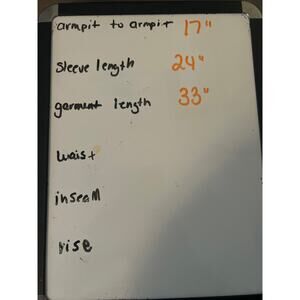 armpit to armpit 17"
sleeve length 24"
garment length 33"
waist
inseam
rise